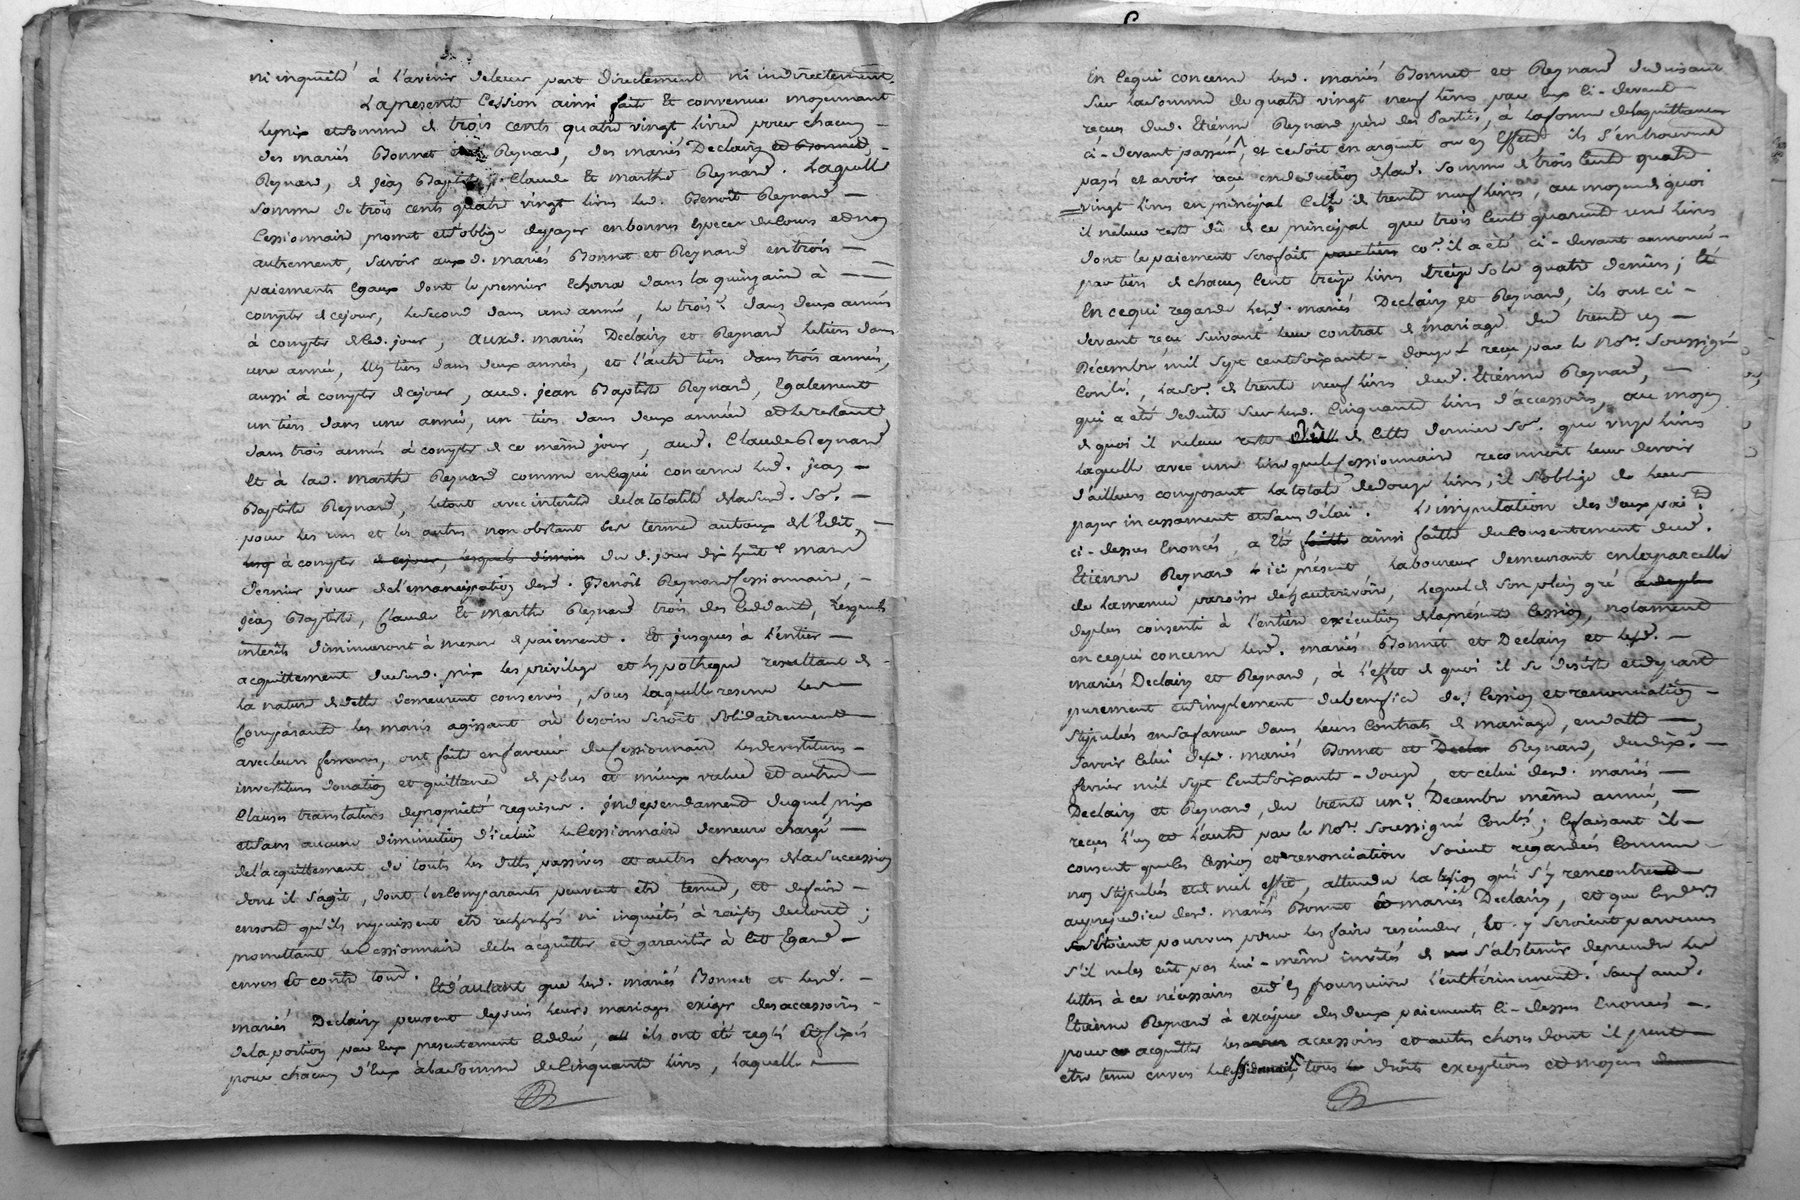 ni inquiété à l'avenir de leur part directement ni indirectement.
La presente Cession ainsi faite Et convenue moyennant
le prix et somme de trois cents quatre vingt livres pour chacun
des mariés Bonnet Reynard, des mariés Declaix et Bonnet,
Reynard, de jean Baptiste, Claude Et marthe Reynard. Laquelle
somme de trois cents quatre vingt livres led. Benoît Reynard
Cessionnaire promet et s'oblige de payer en bonnes especes de cours et non
autrement, savoir auxd. mariés Bonnet et Reynard en trois
paiements Egaux dont le premier Echerra dans la quinzaine à
compter de ce jour, le second dans une année, le trois.e dans deux années
à compter dud. jour, auxd. mariés Declaix et Reynard le tiers dans
une année, un tiers dans deux années, et l'autre tiers dans trois années,
aussi à compter de ce jour, aud. jean Baptiste Reynard, Egalement
un tiers dans une année, un tiers dans deux années et le restant
dans trois années à compter de ce même jour, aud. Claude Reynard
Et à lad. marthe Reynard comme en ce qui concerne led. jean
Baptiste Reynard, le tout avec interêts de la totalité de la sud. So.e
pour les uns et les autres non obstant les termes au taux de l'Edit,
à compter de ce jour, lesquels dimin du d. jour dix huit mars
dernier jour de l'emancipation desd. Benoît Reynard Cessionnaire,
jean Baptiste, Claude Et marthe Reynard trois des Cedants, lesquels
interêts diminueront à mesure de paiement. Et jusques à l'entier
acquittement dud. prix les privilege et hypotheque resultant de
la nature de dette demeurent conservés, sous laquelle reserve les
Comparants les maris agissant où besoin seroit solidairement
avec leurs femmes, ont fait en faveur du Cessionnaire les devestiture
investiture donation et quittance de plus et mieux value et autres
Clauses translatives de propriété requises. jndependament duquel prix
et sans aucune diminution d'icelui le Cessionnaire demeure chargé
de l'acquittement de toutes les dettes passives et autres charges de la succession
dont il s'agit, dont les Comparants peuvent être tenus, et de faire
ensorte qu'ils ny puissent être recherchés ni inquietés à raison de tout;
promettant le Cessionnaire de les acquitter et garantir à cet Egard
envers Et contre tous. Et d'autant que led. mariés Bonnet et lesd.
mariés Declaix peuvent depuis leurs mariages exiger des accessoires
de la portion par Eux presentement Cedée, ils ont été reglés Et fixés
pour chacun d'eux à la somme de Cinquante livres, laquelle
En ce qui concerne lesd. mariés Bonnet et Reynard deduisant
sur la somme de quatre vingt neuf livres par Eux Ci-devant
reçues dud. Etienne Reynard père des Parties, à la forme de la quittance
ci-devant passée, et ce soit en argent ou en Effets ils s'en trouvent
payés et avoir reçu en deduction de lad. somme de trois Cents quatre
vingt livres en principal Celle de trente neuf livres, au moyen de quoi
il ne leur reste dû de ce principal que trois Cents quarante une livres
dont le paiement sera fait par tiers co.e il a été ci-devant annoncé
par tiers de chacun Cent treize livres treize sols quatre deniers; Et
En ce qui regarde lesd. mariés Declaix et Reynard, ils ont ci-
devant reçu suivant leur contrat de mariage du trente un
Decembre mil sept cent soixante-douze reçu par le No.re soussigné
Con.lr, la So.e de trente neuf livres dud. Etienne Reynard,
qui a été deduite sur lesd. Cinquante livres d'accessoires, au moyen
de quoi il ne leur reste dû de Cette derniere So.e que onze livres
laquelle avec une livre que le Cessionnaire reconnoît leur devoir
d'ailleurs composant la totale de douze livres, il s'oblige de leur
payer incessament et sans delai. L'imputation des deux pai.ts
ci-dessus Enoncés, a été faitte ainsi faitte du consentement dud.
Etienne Reynard ici présent laboureur demeurant en la parcelle
de la meme paroisse de hauterivoire, lequel de son plein gré
de plus consenti à l'entiere exécution de la présente Cession, notament
en ce qui concerne lesd. mariés Bonnet et Declaix et lesd.
mariés Declaix et Reynard, à l'effet de quoi il se desiste et depart
purement et simplement du benefice de Cession et renonciation
stipulées en sa faveur dans leurs Contrats de mariage, en datte
savoir Celui desd. mariés Bonnet et Reynard, du dix.e
fevrier mil sept Cent soixante-douze, et celui desd. mariés
Declaix et Reynard, du trente un.e Decembre même année,
reçus l'un et l'autre par le No.re soussigné Con.lr; Ce faisant il
consent que les Cession et renonciation soient regardées Comme
non stipulés et de nul effet, attendu la lesion qui s'y rencontre
au prejudice desd. mariés Bonnet et mariés Declaix, et que lesd.
s'étoient pourvus pour les faire rescinder, Et y seroient parvenus
s'il ne les eût pas lui-même invités de s'abstenir de prendre les
lettres à ce nécessaires et d'en poursuivre l'enthérinement. sauf aud.
Etienne Reynard à exciper des deux paiements Ci-dessus Enoncés
pour acquitter les accessoires et autres choses dont il peut
être tenu envers le Cessionnaire, tous droits exceptions et moyens